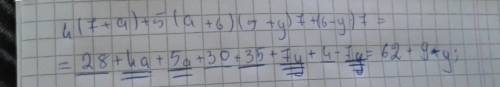 4(7+a)+5(a+6)(5+y)7+(6-y)7=
=28+4a+5a+30+35+7y+4-7y=62+9*y;